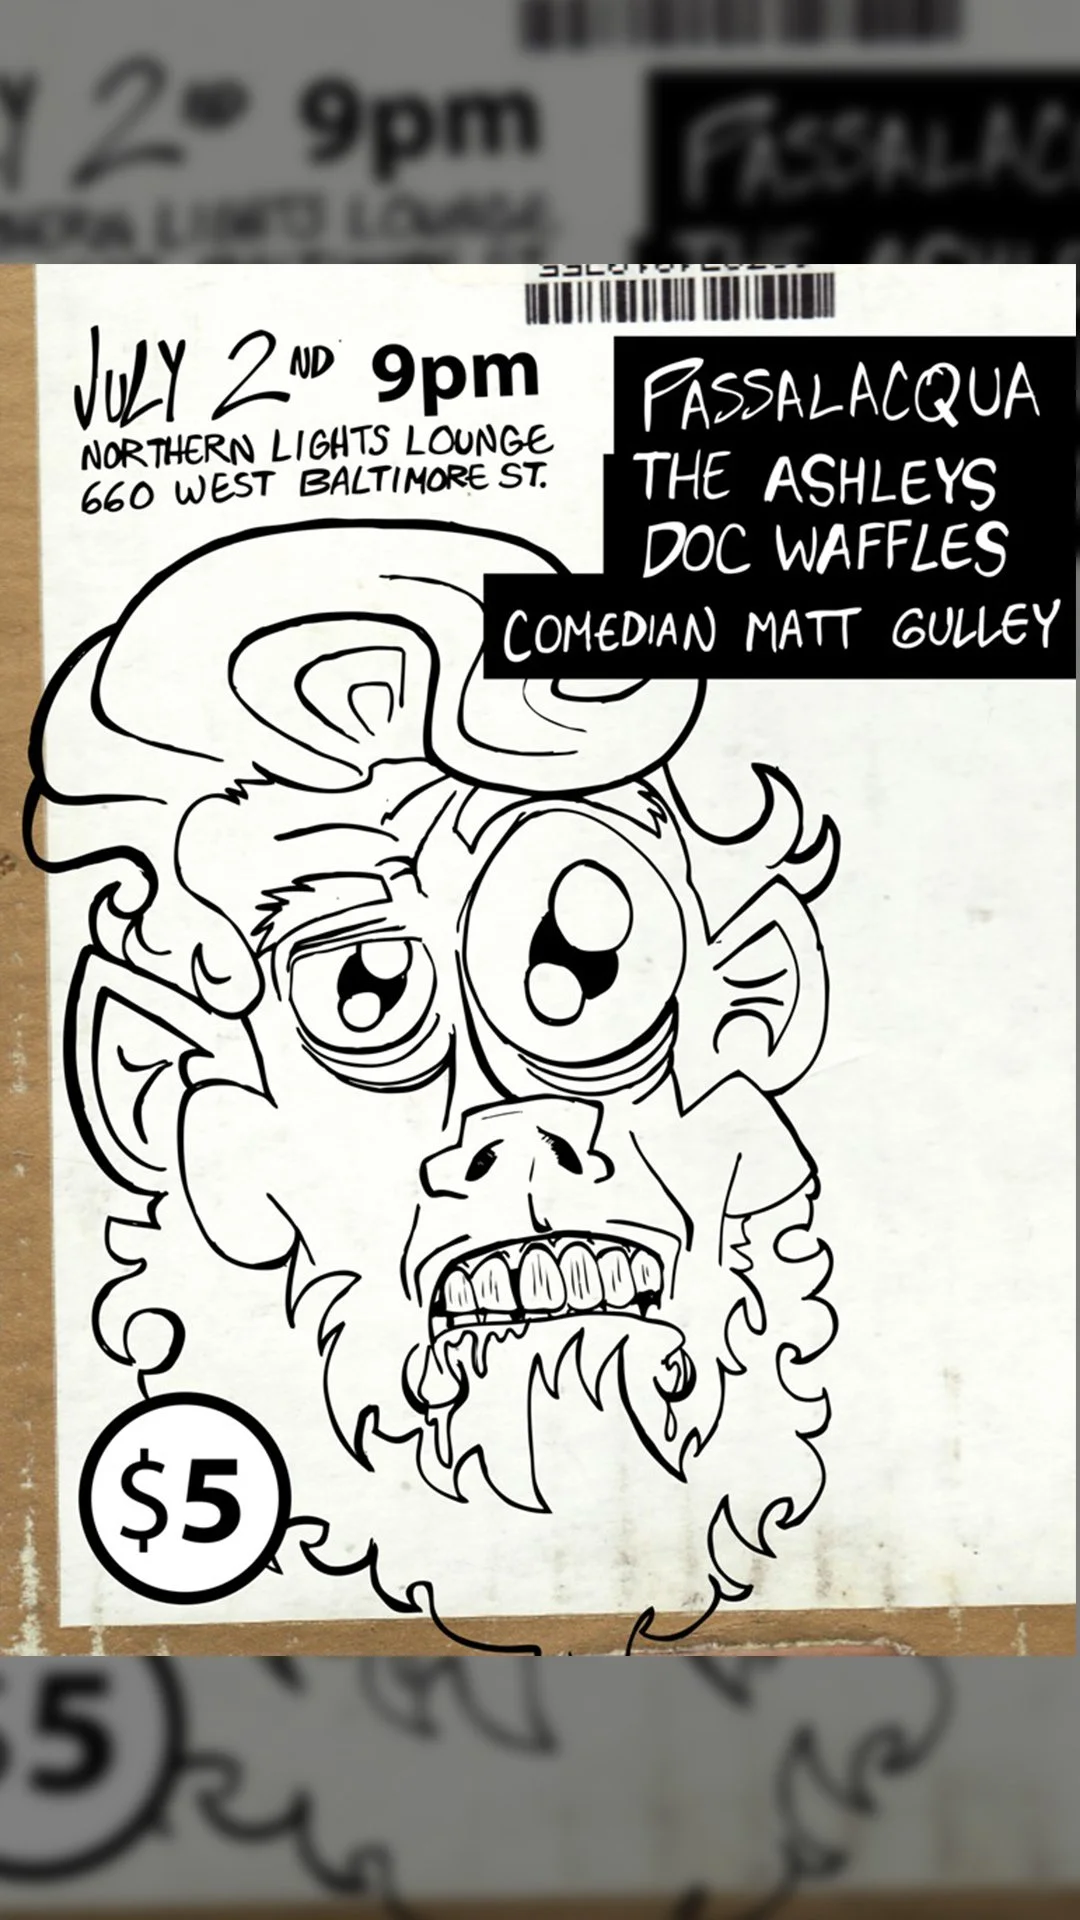 JULY 2ND 9pm
NORTHERN LIGHTS LOUNGE
660 WEST BALTIMORE ST.
PASSALACQUA
THE ASHLEYS
DOC WAFFLES
COMEDIAN MATT GULLEY
$5